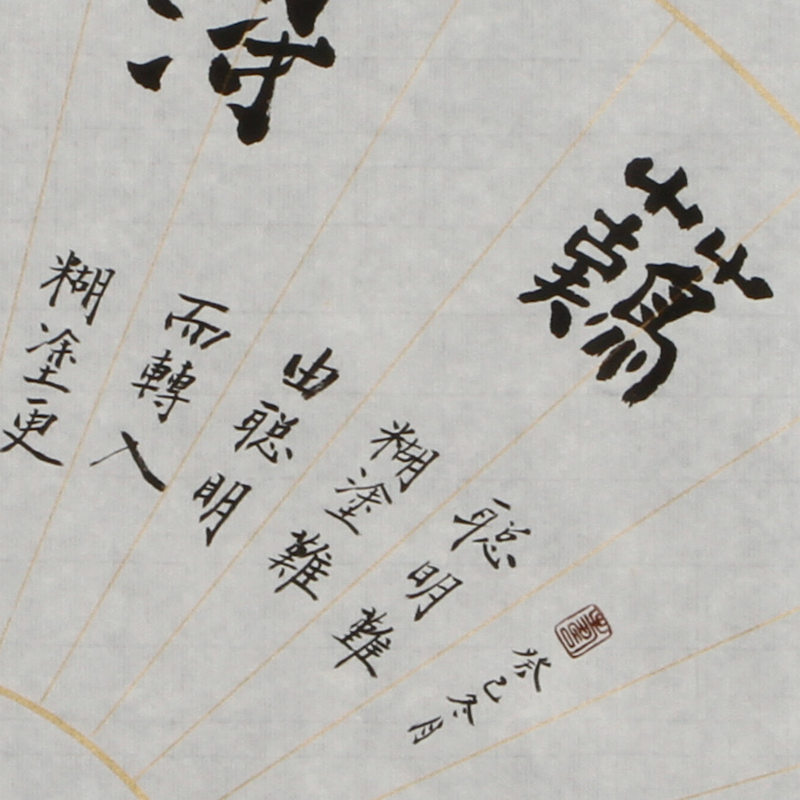 難
得
癸巳冬月
聪明難
糊塗難
由聪明
而轉入
糊塗更